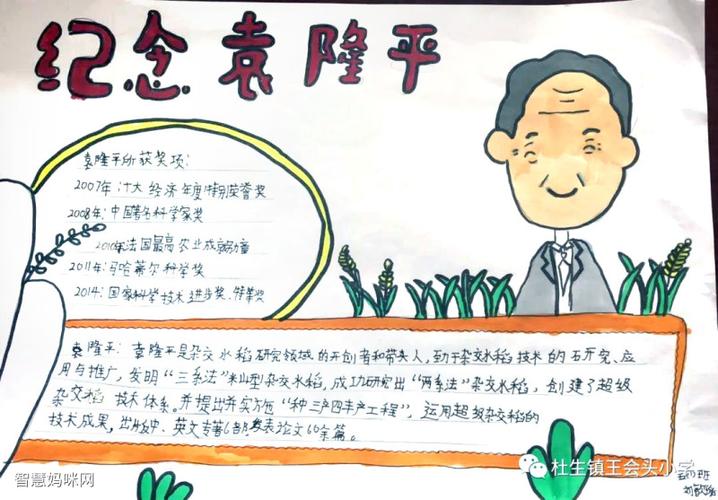 纪念袁隆平
袁隆平所获奖项:
2007年:十大经济年度特别荣誉奖
2008年:中国著名科学家奖
2010年法国最高农业成就勋章
2011年:马哈蒂尔科学奖
2014:国家科学技术进步奖.特等奖
袁隆平:袁隆平是杂交水稻研究领域的开创者和带头人,致力于杂交水稻技术的研究、应
用与推广,发明“三系法”籼型杂交水稻,成功研究出“两系法”杂交水稻,创建了超级
杂交稻技术体系。并提出并实施“种三产四丰产工程”,运用超级杂交稻的
技术成果,出版中、英文专著6部,发表论文60余篇。
智慧妈咪网
杜生镇王会头小学